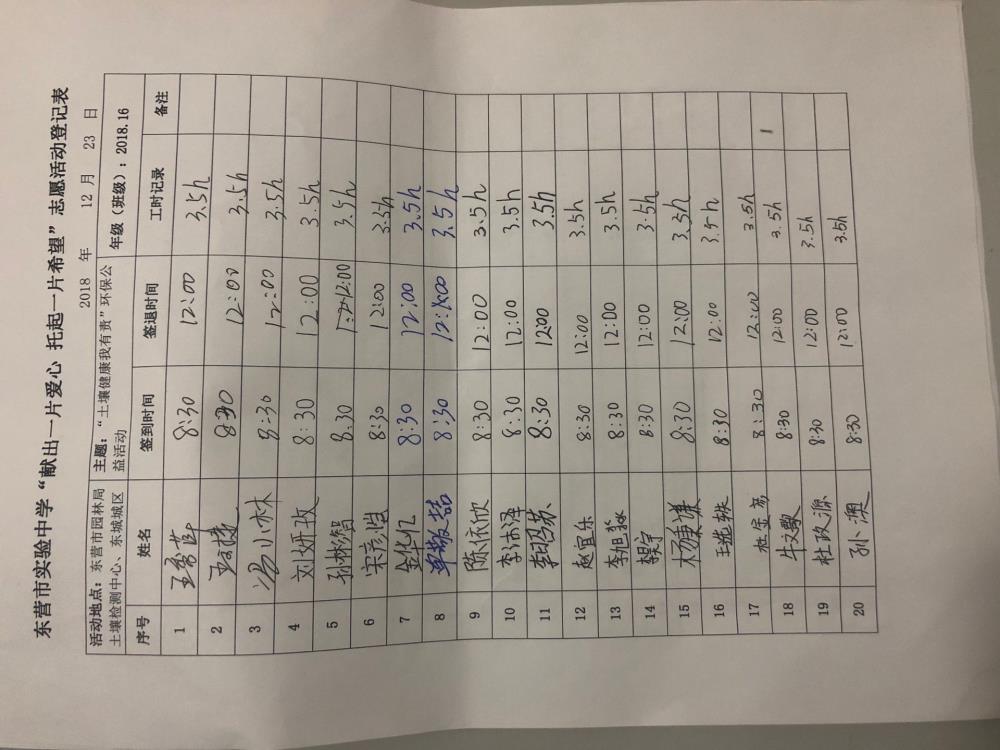 东营市实验中学“献出一片爱心 托起一片希望”志愿活动登记表
2018 年 12 月 23 日
活动地点：东营市园林局土壤检测中心、东城城区 主题：“土壤健康我有责”环保公益活动 年级（班级）：2018.16
序号 姓名 签到时间 签退时间 工时记录 备注
1 8:30 12:00 3.5h
2 8:30 12:00 3.5h
3 冯小林 8:30 12:00 3.5h
4 刘妍孜 8:30 12:00 3.5h
5 孙林智 8:30 12:00 3.5h
6 宋彦浩 8:30 12:00 3.5h
7 8:30 12:00 3.5h
8 8:30 12:00 3.5h
9 陈依欣 8:30 12:00 3.5h
10 李沛泽 8:30 12:00 3.5h
11 8:30 12:00 3.5h
12 赵宜乐 8:30 12:00 3.5h
13 李旭淼 8:30 12:00 3.5h
14 8:30 12:00 3.5h
15 杨庚谦 8:30 12:00 3.5h
16 8:30 12:00 3.5h
17 8:30 12:00 3.5h
18 牛文歌 8:30 12:00 3.5h
19 杜政源 8:30 12:00 3.5h
20 孙澳 8:30 12:00 3.5h